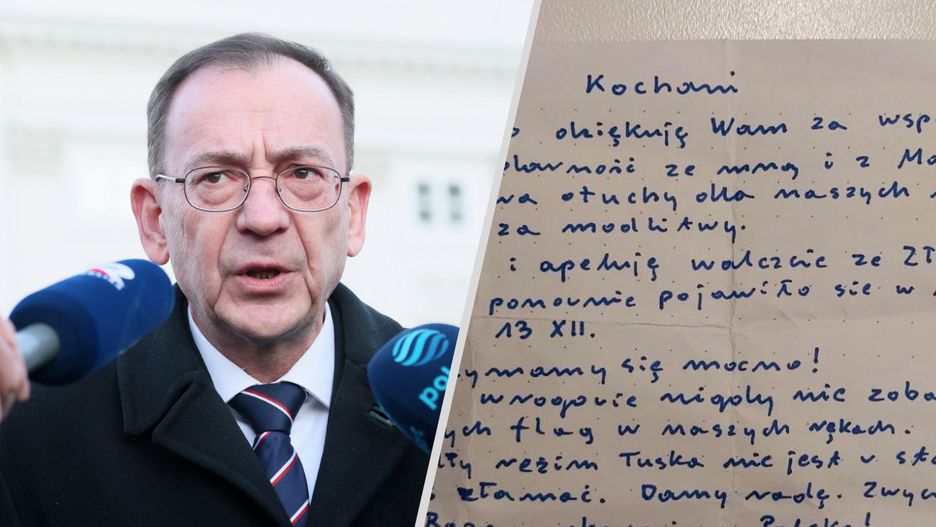 Kochani
dziękuję Wam za wsp
olarność ze mną i z Ma
wa otuchy dla naszych
za modlitwy.
i apeluję walczcie ze Zł
ponownie pojawiło się w
13 XII.
ymamy się mocno!
wrogowie nigdy nie zoba
ych flag w naszych rękach.
ły reżim Tuska nie jest w st
złamać. Damy radę. Zwyc
Polska!
pol